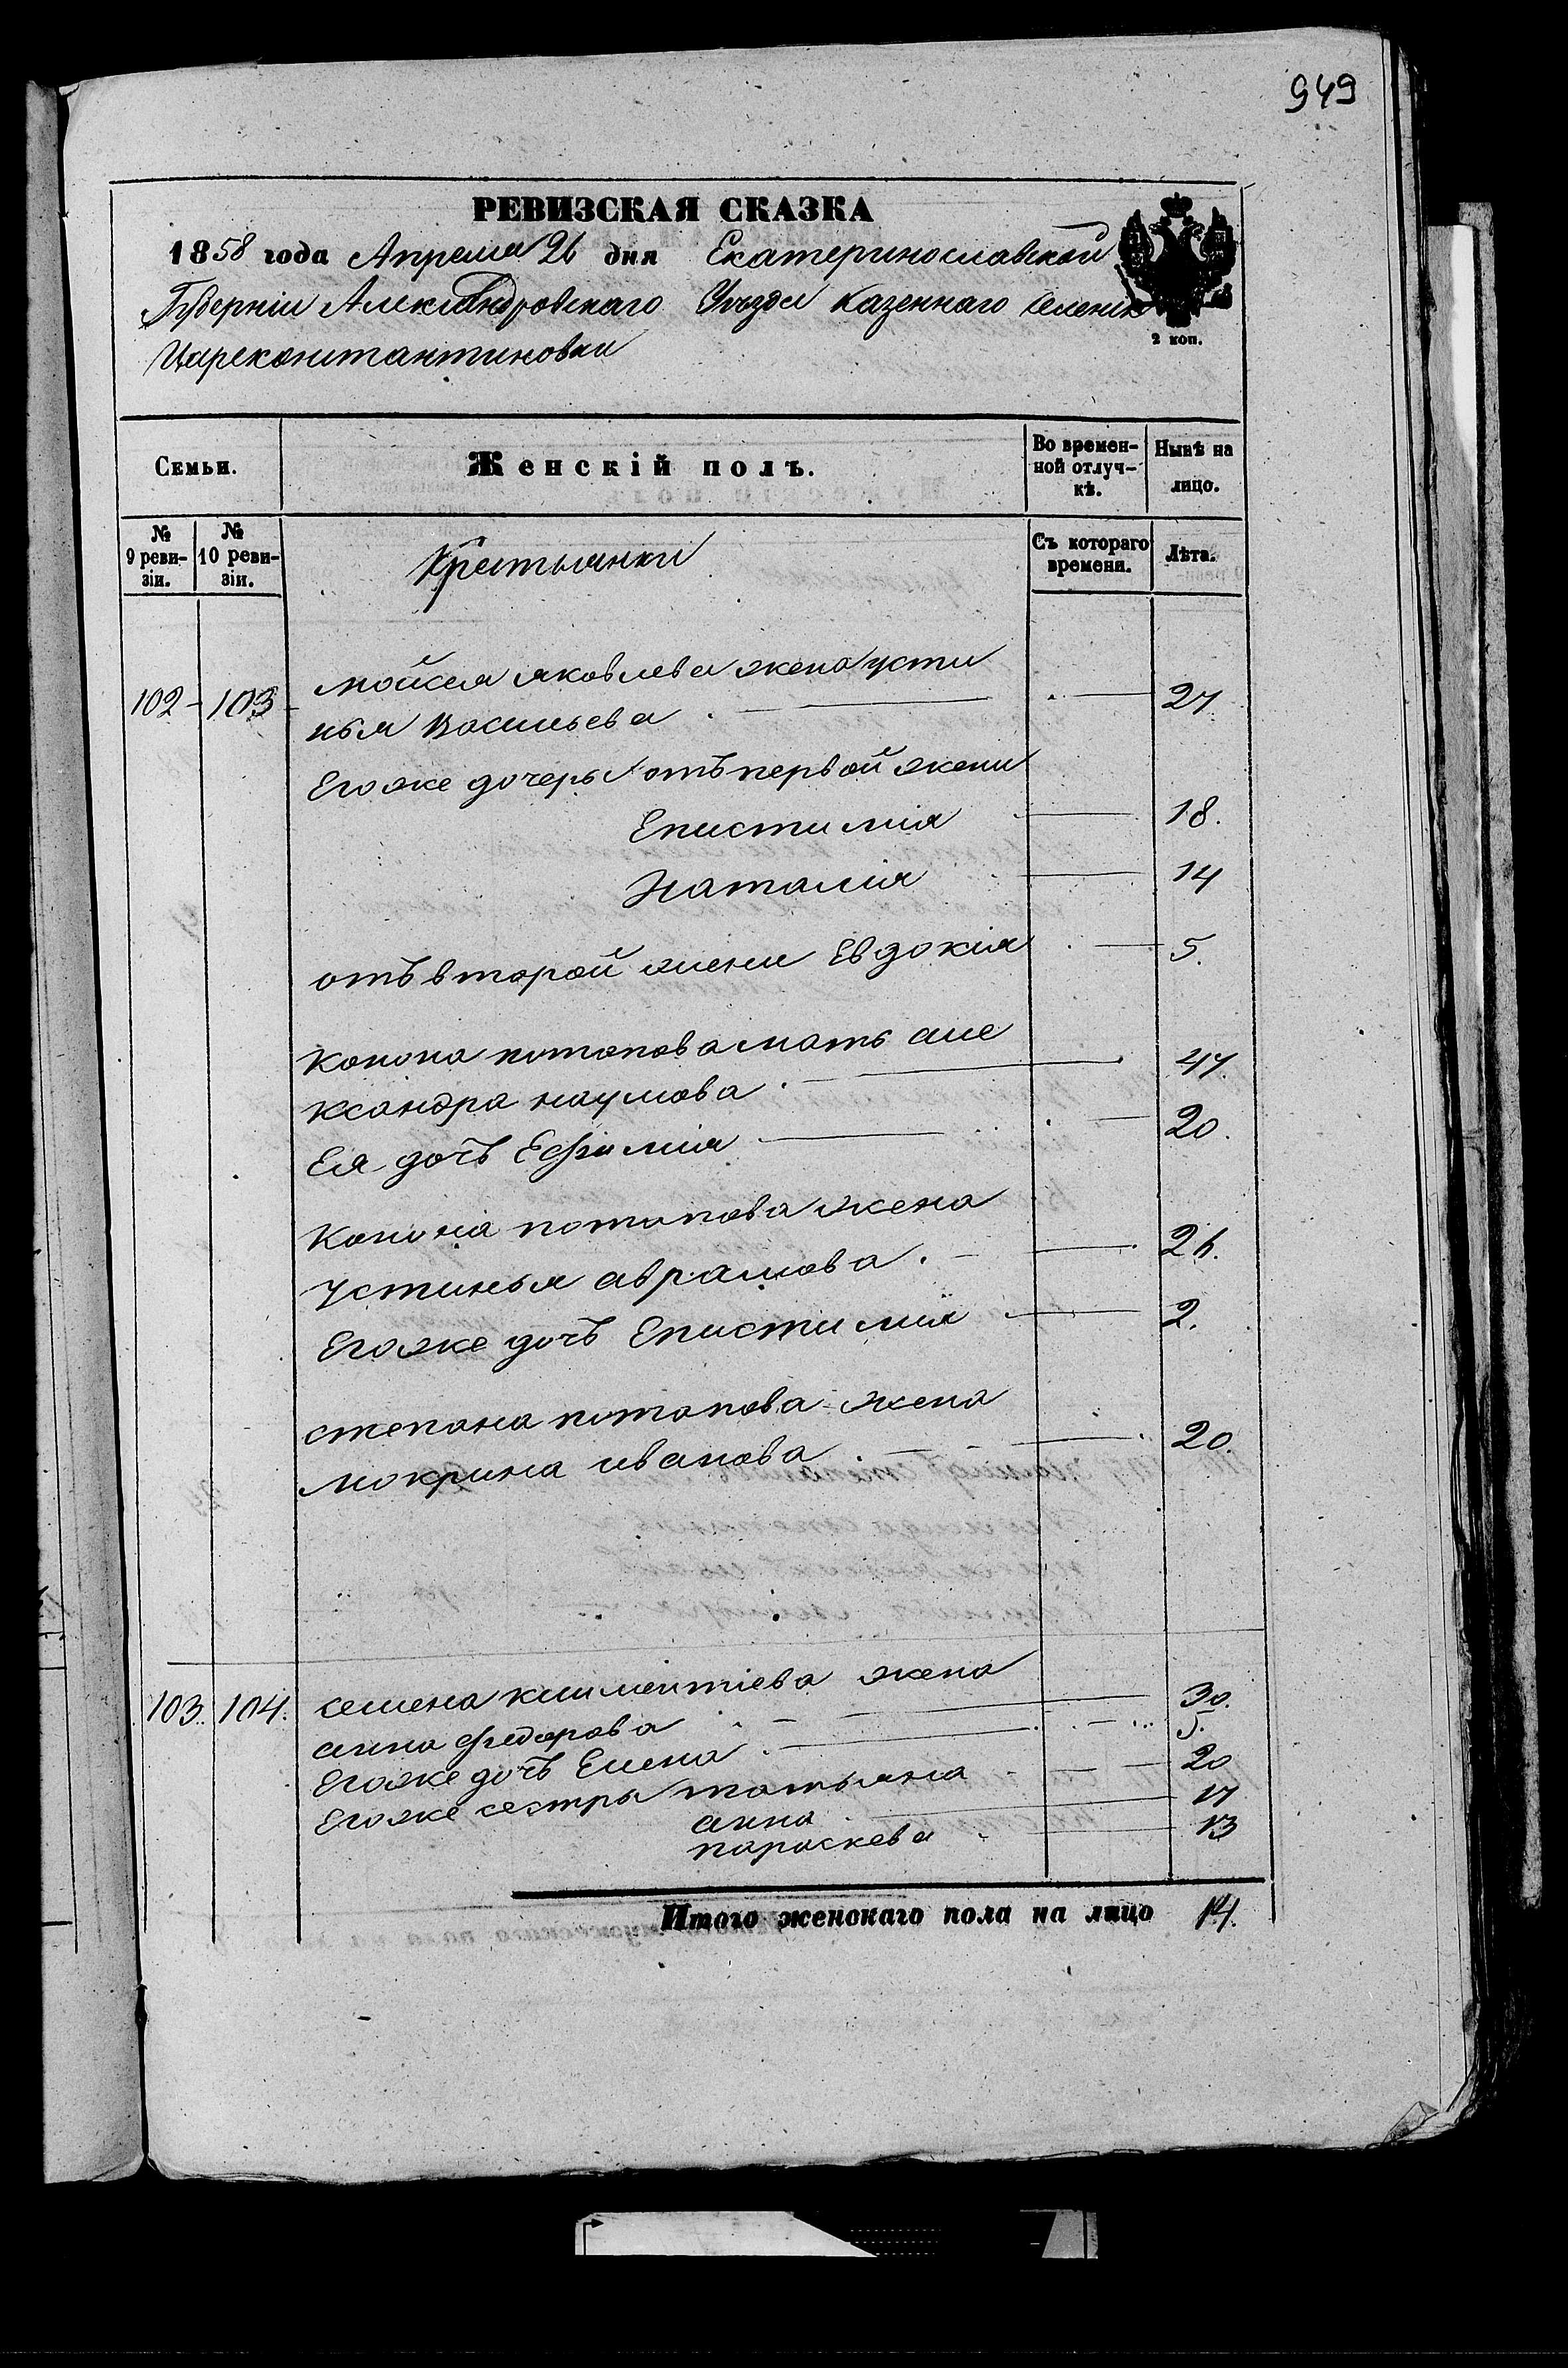 949
РЕВИЗСКАЯ СКАЗКА
1858 года Апреля 26 дня Екатеринославской
Губерніи Александровскаго Уѣзда казеннаго селенія
Цареконстантиновки
2 коп.
Семьи. Женскій полъ. Во времен- Нынѣ на
ной отлуч- лицо.
кѣ.
№ № Съ котораго Лѣта.
9 реви- 10 реви- времени.
зіи. зіи.
Крестьянки
мойсея яковлева жена усти
102 103 нья васильева 27
Егоже дочеры отъ первой жены
Епистимія 18.
Наталія 14
отъ второй жени Евдокія 5.
конона потапова мать але
ксандра наумова 47.
Ея дочъ Ефимія 20.
Конона потапова жена
Устинья аврамова 26.
Егоже дочъ Епистимія 2.
степана потапова жена
мокрина иванова 20.
103. 104. семена климентіева жена
анна федорова 30.
Егоже дочъ Елена 5.
Егоже сестры татьяна 20
анна 17
параскева 13
Итого женскаго пола на лицо 14.